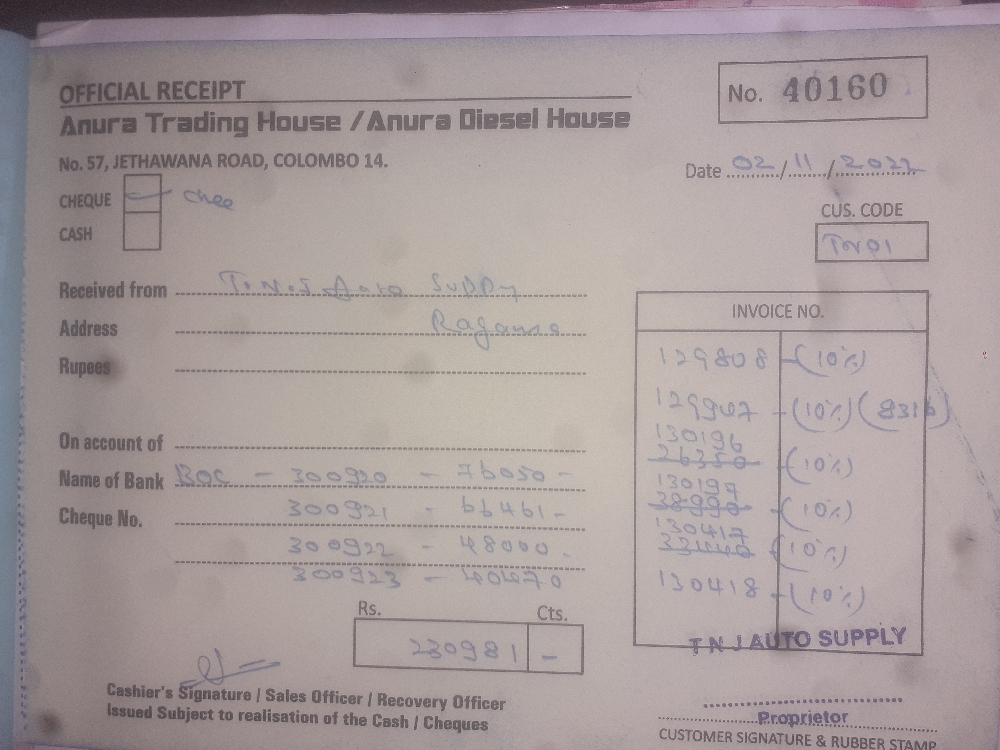 OFFICIAL RECEIPT
No. 40160
Anura Trading House / Anura Diesel House
No. 57, JETHAWANA ROAD, COLOMBO 14.
Date 02/11/2022
CHEQUE
CASH
CUS. CODE
Received from T.N.J Auto Supply
Address Ragama
Rupees
On account of
Name of Bank BOC - 300920 - 76050 -
Cheque No. 300921 - 66461 -
300922 - 48000 -
300923 - 40470
Rs. Cts.
230981 -
INVOICE NO.
129808 - (10%)
129907 - (10%) (8316)
130196
26350 - (10%)
130197
38990 - (10%)
130417
33440 (10%)
130418 - (10%)
T N J AUTO SUPPLY
Proprietor
Cashier's Signature / Sales Officer / Recovery Officer
Issued Subject to realisation of the Cash / Cheques
CUSTOMER SIGNATURE & RUBBER STAMP